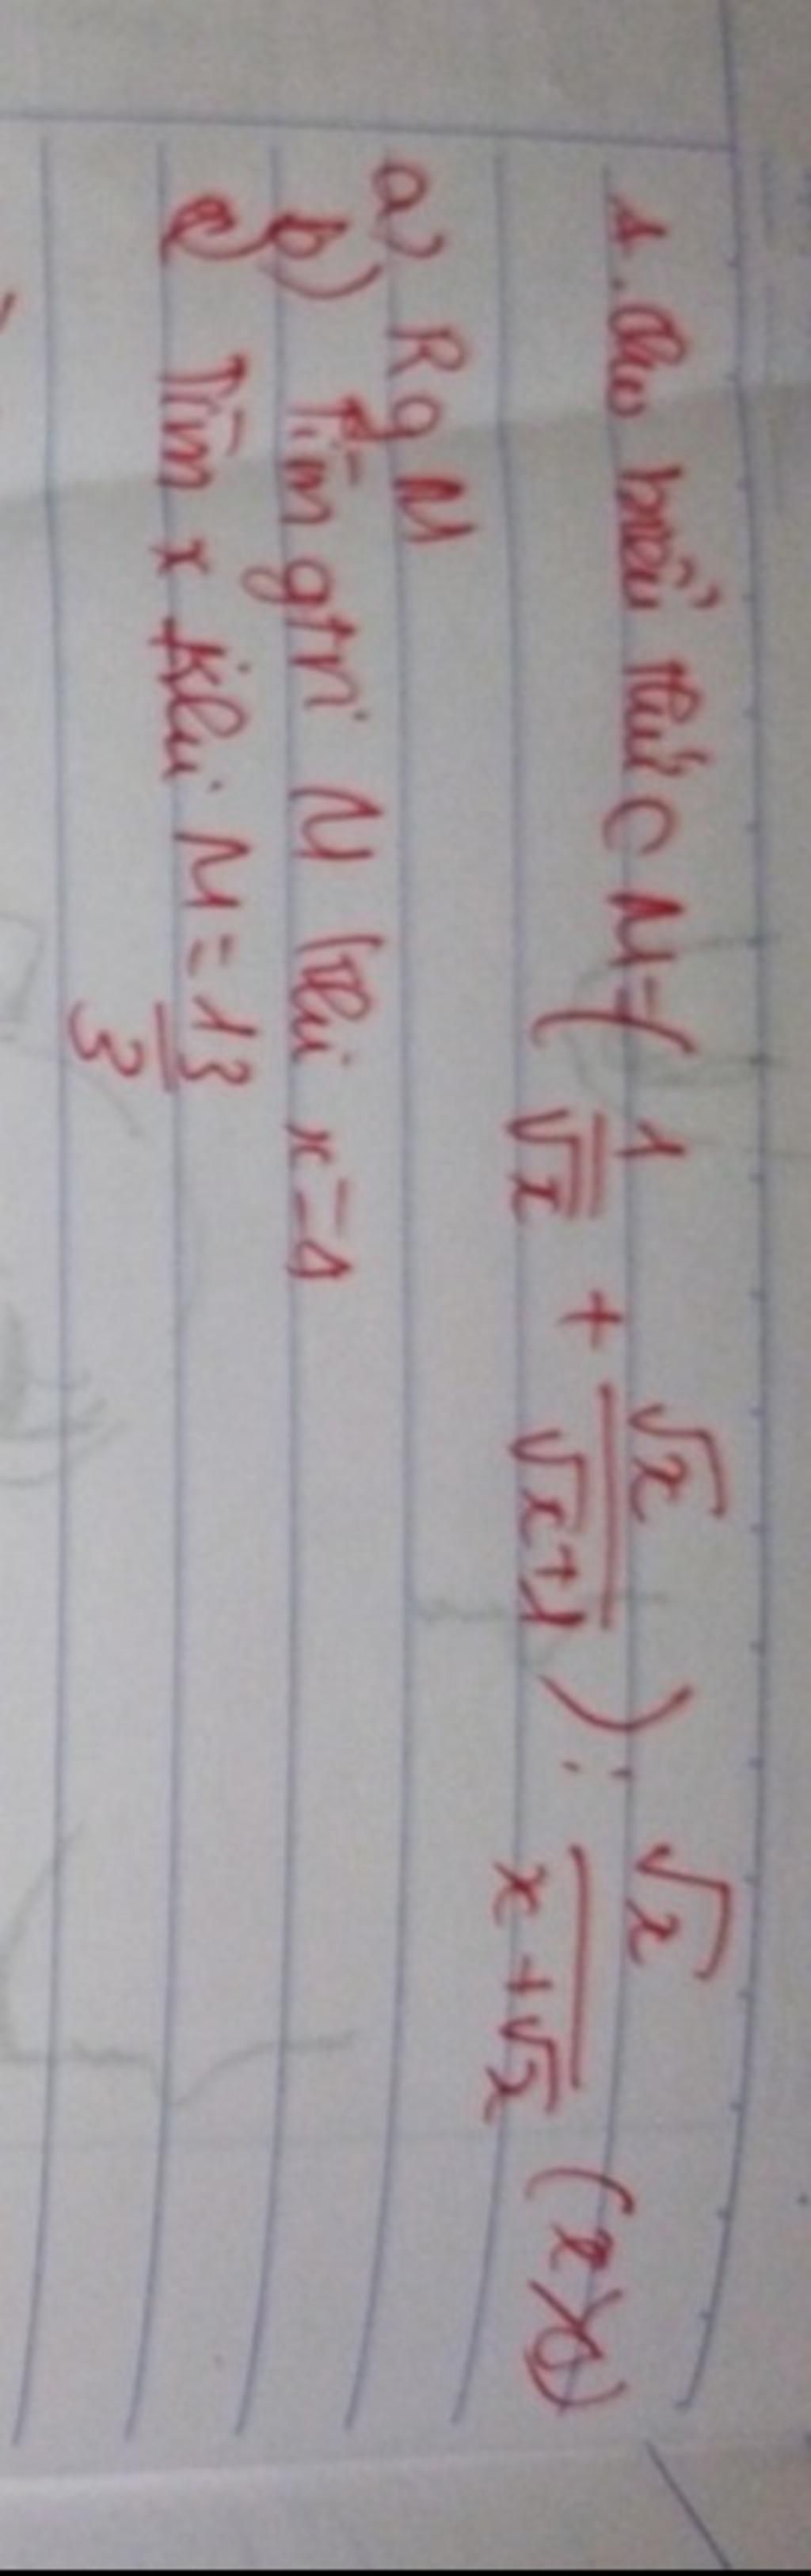 1. Cho biểu thức M = ( 1/√x + √x/√x+1 ) : √x/x+√x (x>0)
a) Rg M
b) Tìm gtrị M khi x=4
c) Tìm x khi M = 13/3